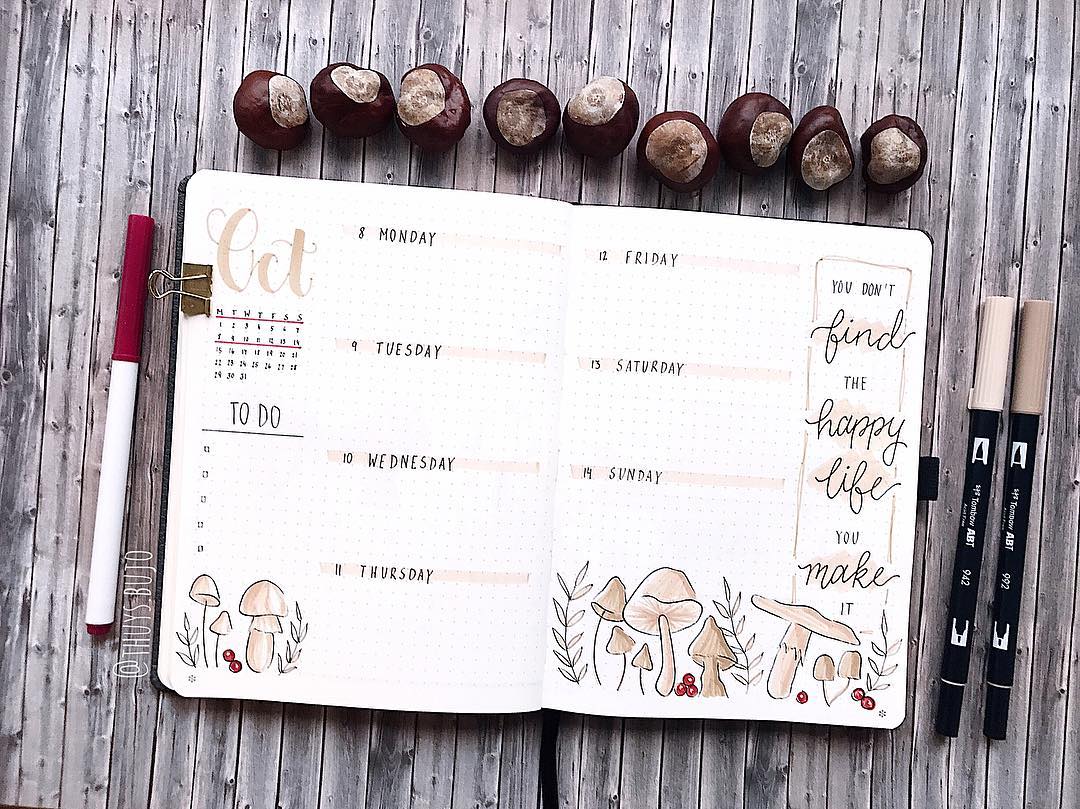 Oct
M T W T F S S
1 2 3 4 5 6 7
8 9 10 11 12 13 14
15 16 17 18 19 20 21
22 23 24 25 26 27 28
29 30 31
TO DO
8 MONDAY
9 TUESDAY
10 WEDNESDAY
11 THURSDAY
12 FRIDAY
13 SATURDAY
14 SUNDAY
YOU DON'T
find
THE
happy
life
YOU
make
IT
Tombow ABT
942
Tombow ABT
992
@THUYS.BUJO